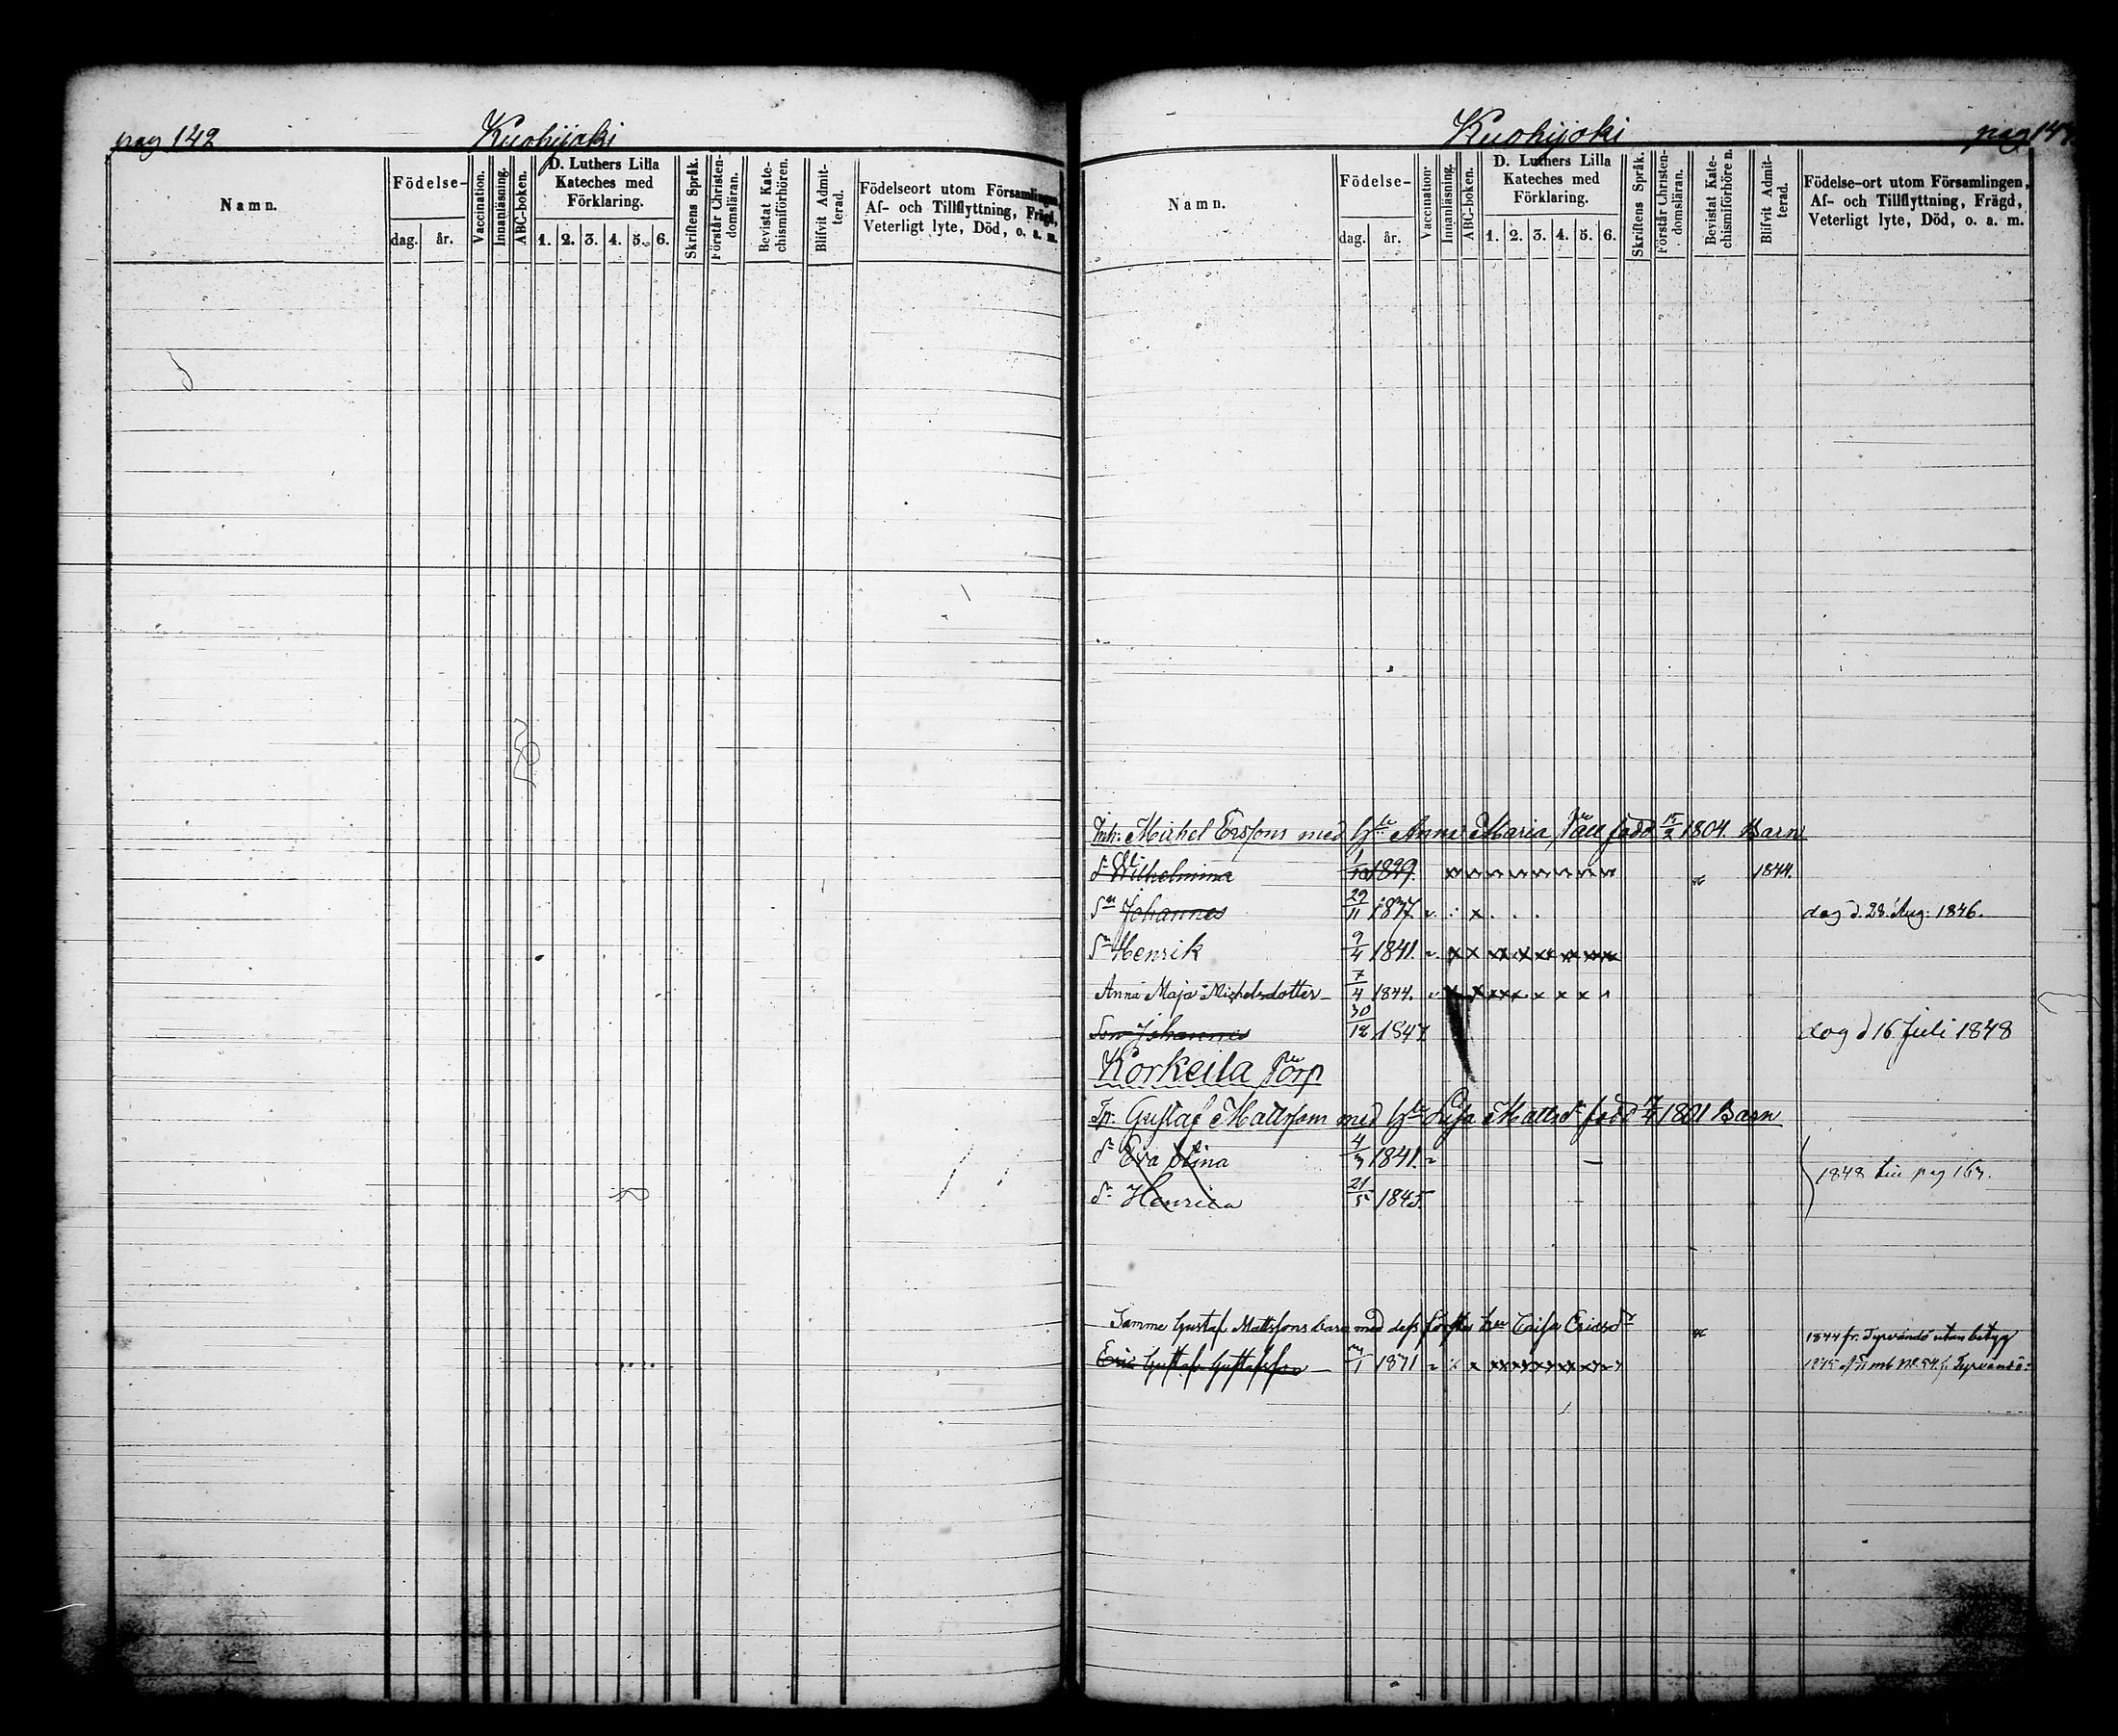 pag 142 Kuohijoki
Namn. Födelse- dag. år. Vaccination. Innanläsning. ABC-boken. D. Luthers Lilla Kateches med Förklaring. 1. 2. 3. 4. 5. 6. Skriftens Språk. Förstår Christendomsläran. Bevistat Katechismiförhören. Blifvit Admitterad. Födelseort utom Församlingen, Af- och Tillflyttning, Frägd, Veterligt lyte, Död, o. a. m.
Kuohijoki pag 14
Namn. Födelse- dag. år. Vaccination. Innanläsning. ABC-boken. D. Luthers Lilla Kateches med Förklaring. 1. 2. 3. 4. 5. 6. Skriftens Språk. Förstår Christendomsläran. Bevistat Katechismiförhören. Blifvit Admitterad. Födelse-ort utom Församlingen, Af- och Tillflyttning, Frägd, Veterligt lyte, Död, o. a. m.
Inh: Michel Erssons med H:u Anna Maria född 15/2 1804. Barn
d: Wilhelmina 1/10 1829 1844.
S:n Johannes 29/11 1837. dog d. 28. Aug. 1846.
S:n Henrik 9/4 1841.
Anna Maja Michelsdotter 7/4 1844.
Son Johannes 30/12 1847 dog d 16 Juli 1848
Korkeila Torp
Tp: Gustaf Mattsson med H:u Lisa Mattsd:r född 7/4 1801 Barn
d:r Eva Stina 4/3 1841.
d:r Henrica 21/5 1845. 1848 till pag 163.
Samme Gustaf Mattssons barn med dess förstes hu Caisa Ericsd:r 1844 fr. Tyrvändö utan betyg
Eric Gustaf Gustafsson 1831 1845 Tyrvändö